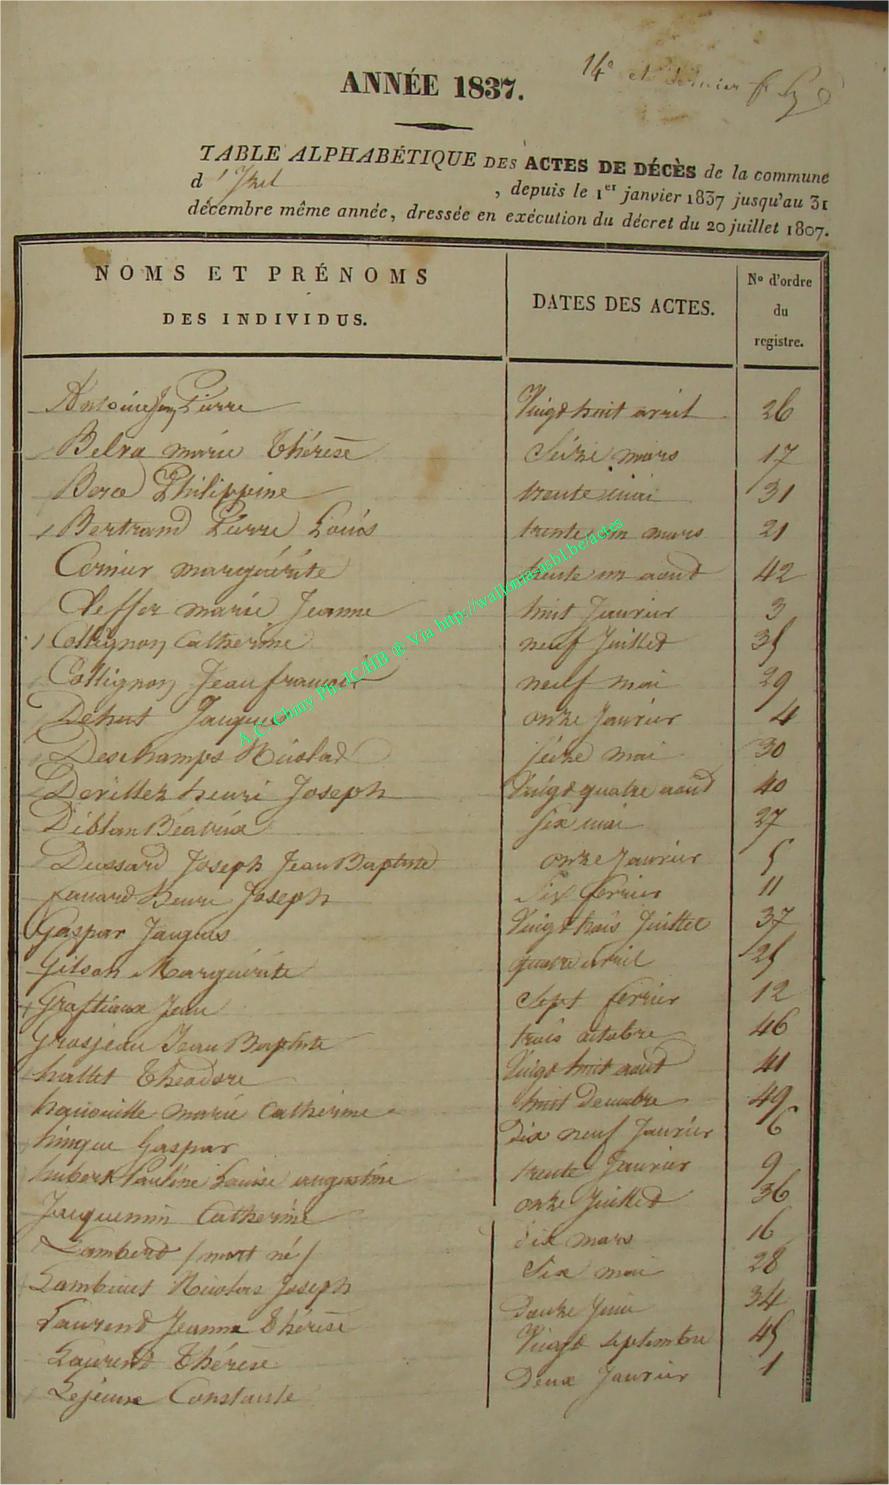 14e
ANNÉE 1837.
TABLE ALPHABÉTIQUE DES ACTES DE DÉCÈS de la commune
d , depuis le 1er janvier 1837 jusqu'au 31
décembre même année, dressée en exécution du décret du 20 juillet 1807.
NOMS ET PRÉNOMS DATES DES ACTES. No d'ordre
DES INDIVIDUS. du
registre.
Antoine Pierre Vingt huit avril 26
Belva marie thérèse Seize mars 17
Philippine trente mai 31
Bertrand Pierre Louis trente un mars 21
Cornier marguérite trente un aout 42
Cleffer marie Jeanne huit Janvier 3
Collignon Catherine neuf Juillet 35
Collignon Jean francois neuf mai 29
Dehut Jacques onze Janvier 4
Deschamps Nicolas Seize mai 30
Devillez henri Joseph Vingt quatre aout 40
Béatrix Six mai 27
Dussard Joseph Jean Baptiste onze Janvier 5
henri Joseph Six fevrier 11
Gaspar Jacques Vingt trois Juillet 37
Gilson Marguérite quatre avril 25
Jean Sept fevrier 12
Grosjean Jean Baptiste trois octobre 46
hallet théodore Vingt huit aout 41
marie Catherine huit Decembre 49
Gaspar Dix neuf Janvier 6
hubert Pauline Louise augustine trente Janvier 9
Jacquemin Catherine onze Juillet 36
Lambert / mort né / dix mars 16
Nicolas Joseph Six mai 28
Laurent Jeanne thérèse Douze Juin 34
Laurent thérèse Vingt Septembre 45
Lejeune Constante Deux Janvier 1
A.C. Chiny Ph. JC HB ® Via http://wallonia-asbl.be/actes